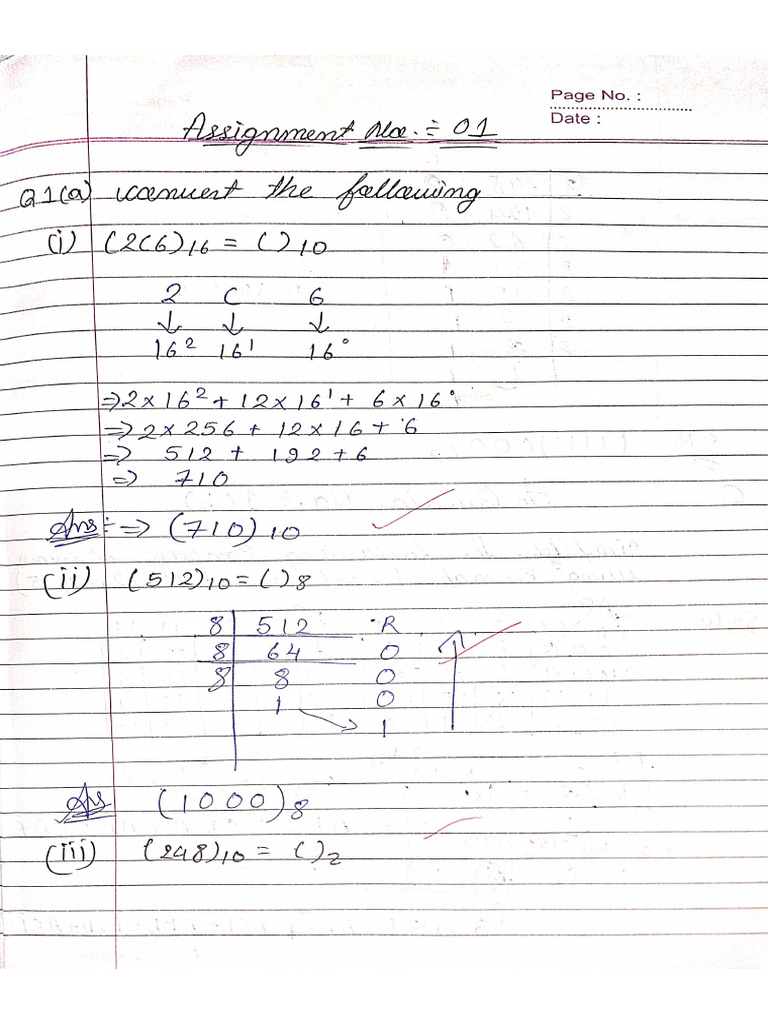 Page No. :
Date :
Assignment No. :- 01
Q1(a) convert the following
(i) (2C6)16 = ( )10
2 C 6
↓ ↓ ↓
16² 16¹ 16⁰
⇒ 2 × 16² + 12 × 16¹ + 6 × 16⁰
⇒ 2 × 256 + 12 × 16 + 6
⇒ 512 + 192 + 6
⇒ 710
Ans :- ⇒ (710)10
(ii) (512)10 = ( )8
8 | 512 R
8 | 64 0
8 | 8 0
1 0
→ 1
Ans (1000)8
(iii) (248)10 = ( )2